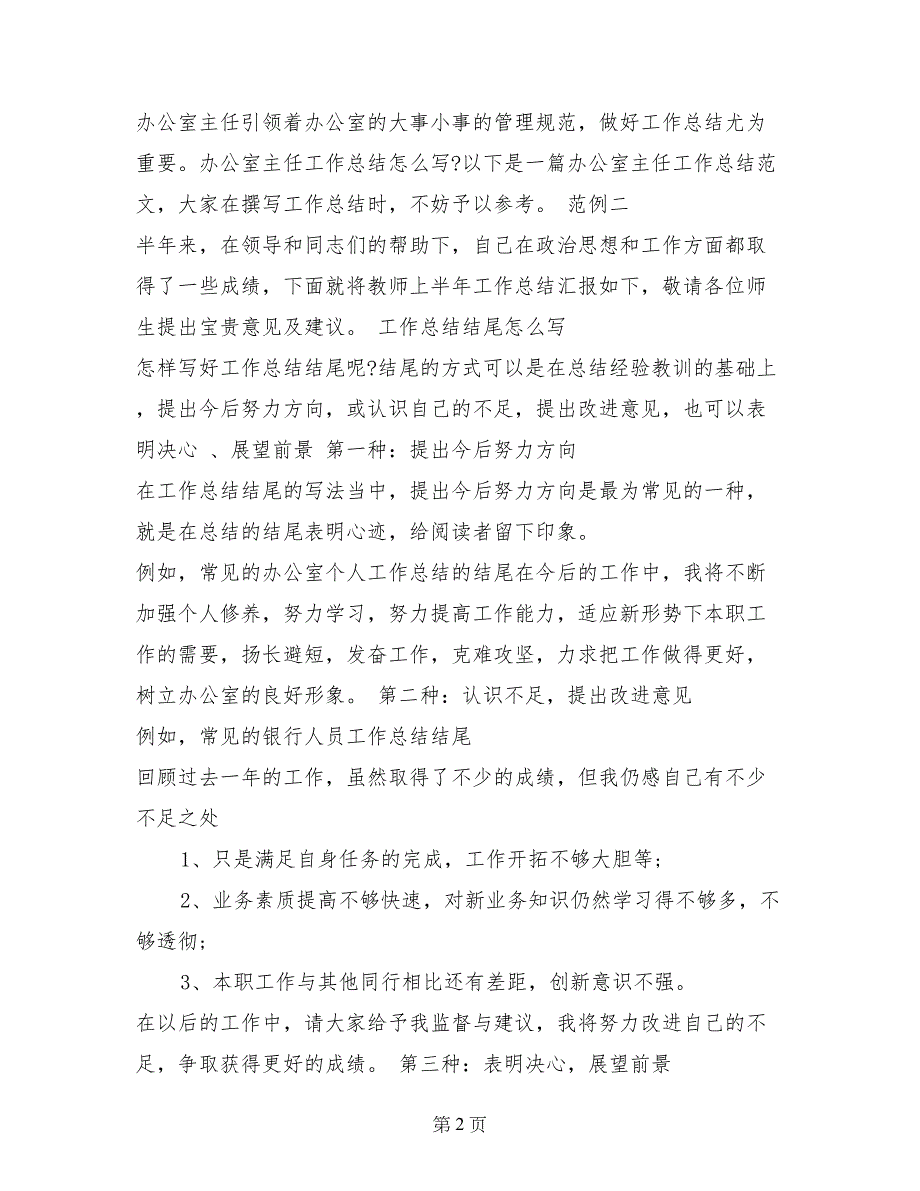 办公室主任引领着办公室的大事小事的管理规范，做好工作总结尤为
重要。办公室主任工作总结怎么写?以下是一篇办公室主任工作总结范
文，大家在撰写工作总结时，不妨予以参考。 范例二
半年来，在领导和同志们的帮助下，自己在政治思想和工作方面都取
得了一些成绩，下面就将教师上半年工作总结汇报如下，敬请各位师
生提出宝贵意见及建议。 工作总结结尾怎么写
怎样写好工作总结结尾呢?结尾的方式可以是在总结经验教训的基础上
，提出今后努力方向，或认识自己的不足，提出改进意见，也可以表
明决心 、展望前景 第一种：提出今后努力方向
在工作总结结尾的写法当中，提出今后努力方向是最为常见的一种，
就是在总结的结尾表明心迹，给阅读者留下印象。
例如，常见的办公室个人工作总结的结尾在今后的工作中，我将不断
加强个人修养，努力学习，努力提高工作能力，适应新形势下本职工
作的需要，扬长避短，发奋工作，克难攻坚，力求把工作做得更好，
树立办公室的良好形象。 第二种：认识不足，提出改进意见
例如，常见的银行人员工作总结结尾
回顾过去一年的工作，虽然取得了不少的成绩，但我仍感自己有不少
不足之处
1、只是满足自身任务的完成，工作开拓不够大胆等;
2、业务素质提高不够快速，对新业务知识仍然学习得不够多，不
够透彻;
3、本职工作与其他同行相比还有差距，创新意识不强。
在以后的工作中，请大家给予我监督与建议，我将努力改进自己的不
足，争取获得更好的成绩。 第三种：表明决心，展望前景
第 2 页